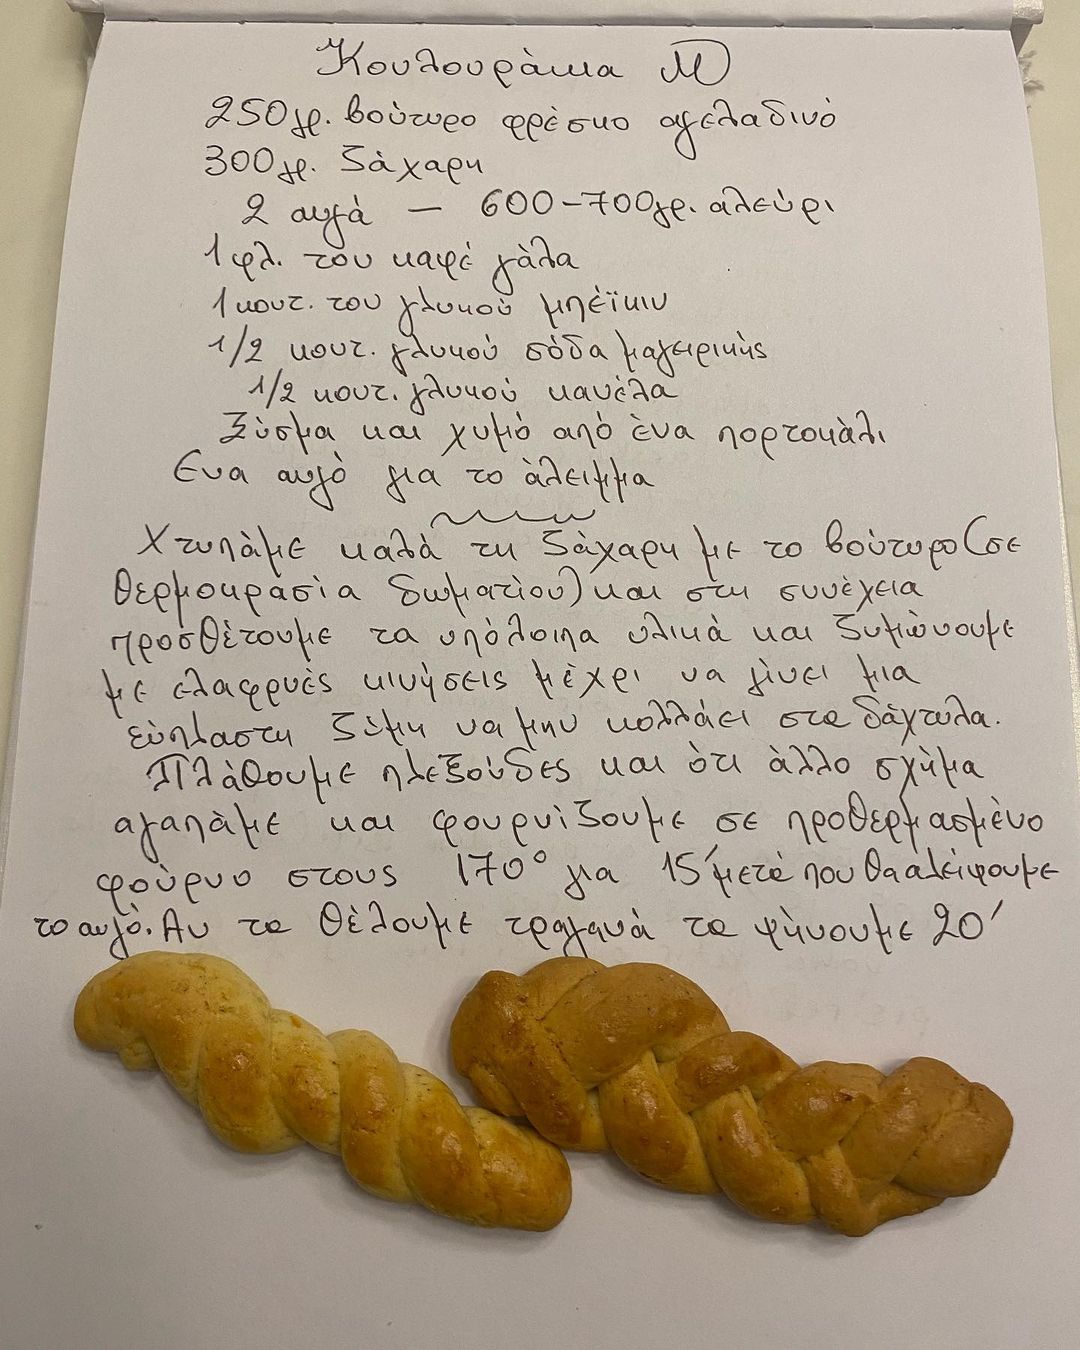 Κουλουράκια
250γρ. βούτυρο φρέσκο αγελαδινό
300γρ. ζάχαρη
2 αυγά — 600-700γρ. αλεύρι
1 φλ. του καφέ γάλα
1 κουτ. του γλυκού μπέϊκιν
1/2 κουτ. γλυκού σόδα μαγειρικής
1/2 κουτ. γλυκού κανέλα
Ξύσμα και χυμό από ένα πορτοκάλι
Ενα αυγό για το άλειμμα
Χτυπάμε καλά τη ζάχαρη με το βούτυρο (σε
θερμοκρασία δωματίου) και στη συνέχεια
προσθέτουμε τα υπόλοιπα υλικά και ζυμώνουμε
με ελαφρυές κινήσεις μέχρι να γίνει μια
εύπλαστη ζύμη να μην κολλάει στα δάχτυλα.
Πλάθουμε πλεξούδες και ότι άλλο σχήμα
αγαπάμε και φουρνίζουμε σε προθερμασμένο
φούρνο στους 170° για 15΄ μετά που θα αλείψουμε
το αυγό. Αν τα θέλουμε τραγανά τα ψήνουμε 20΄